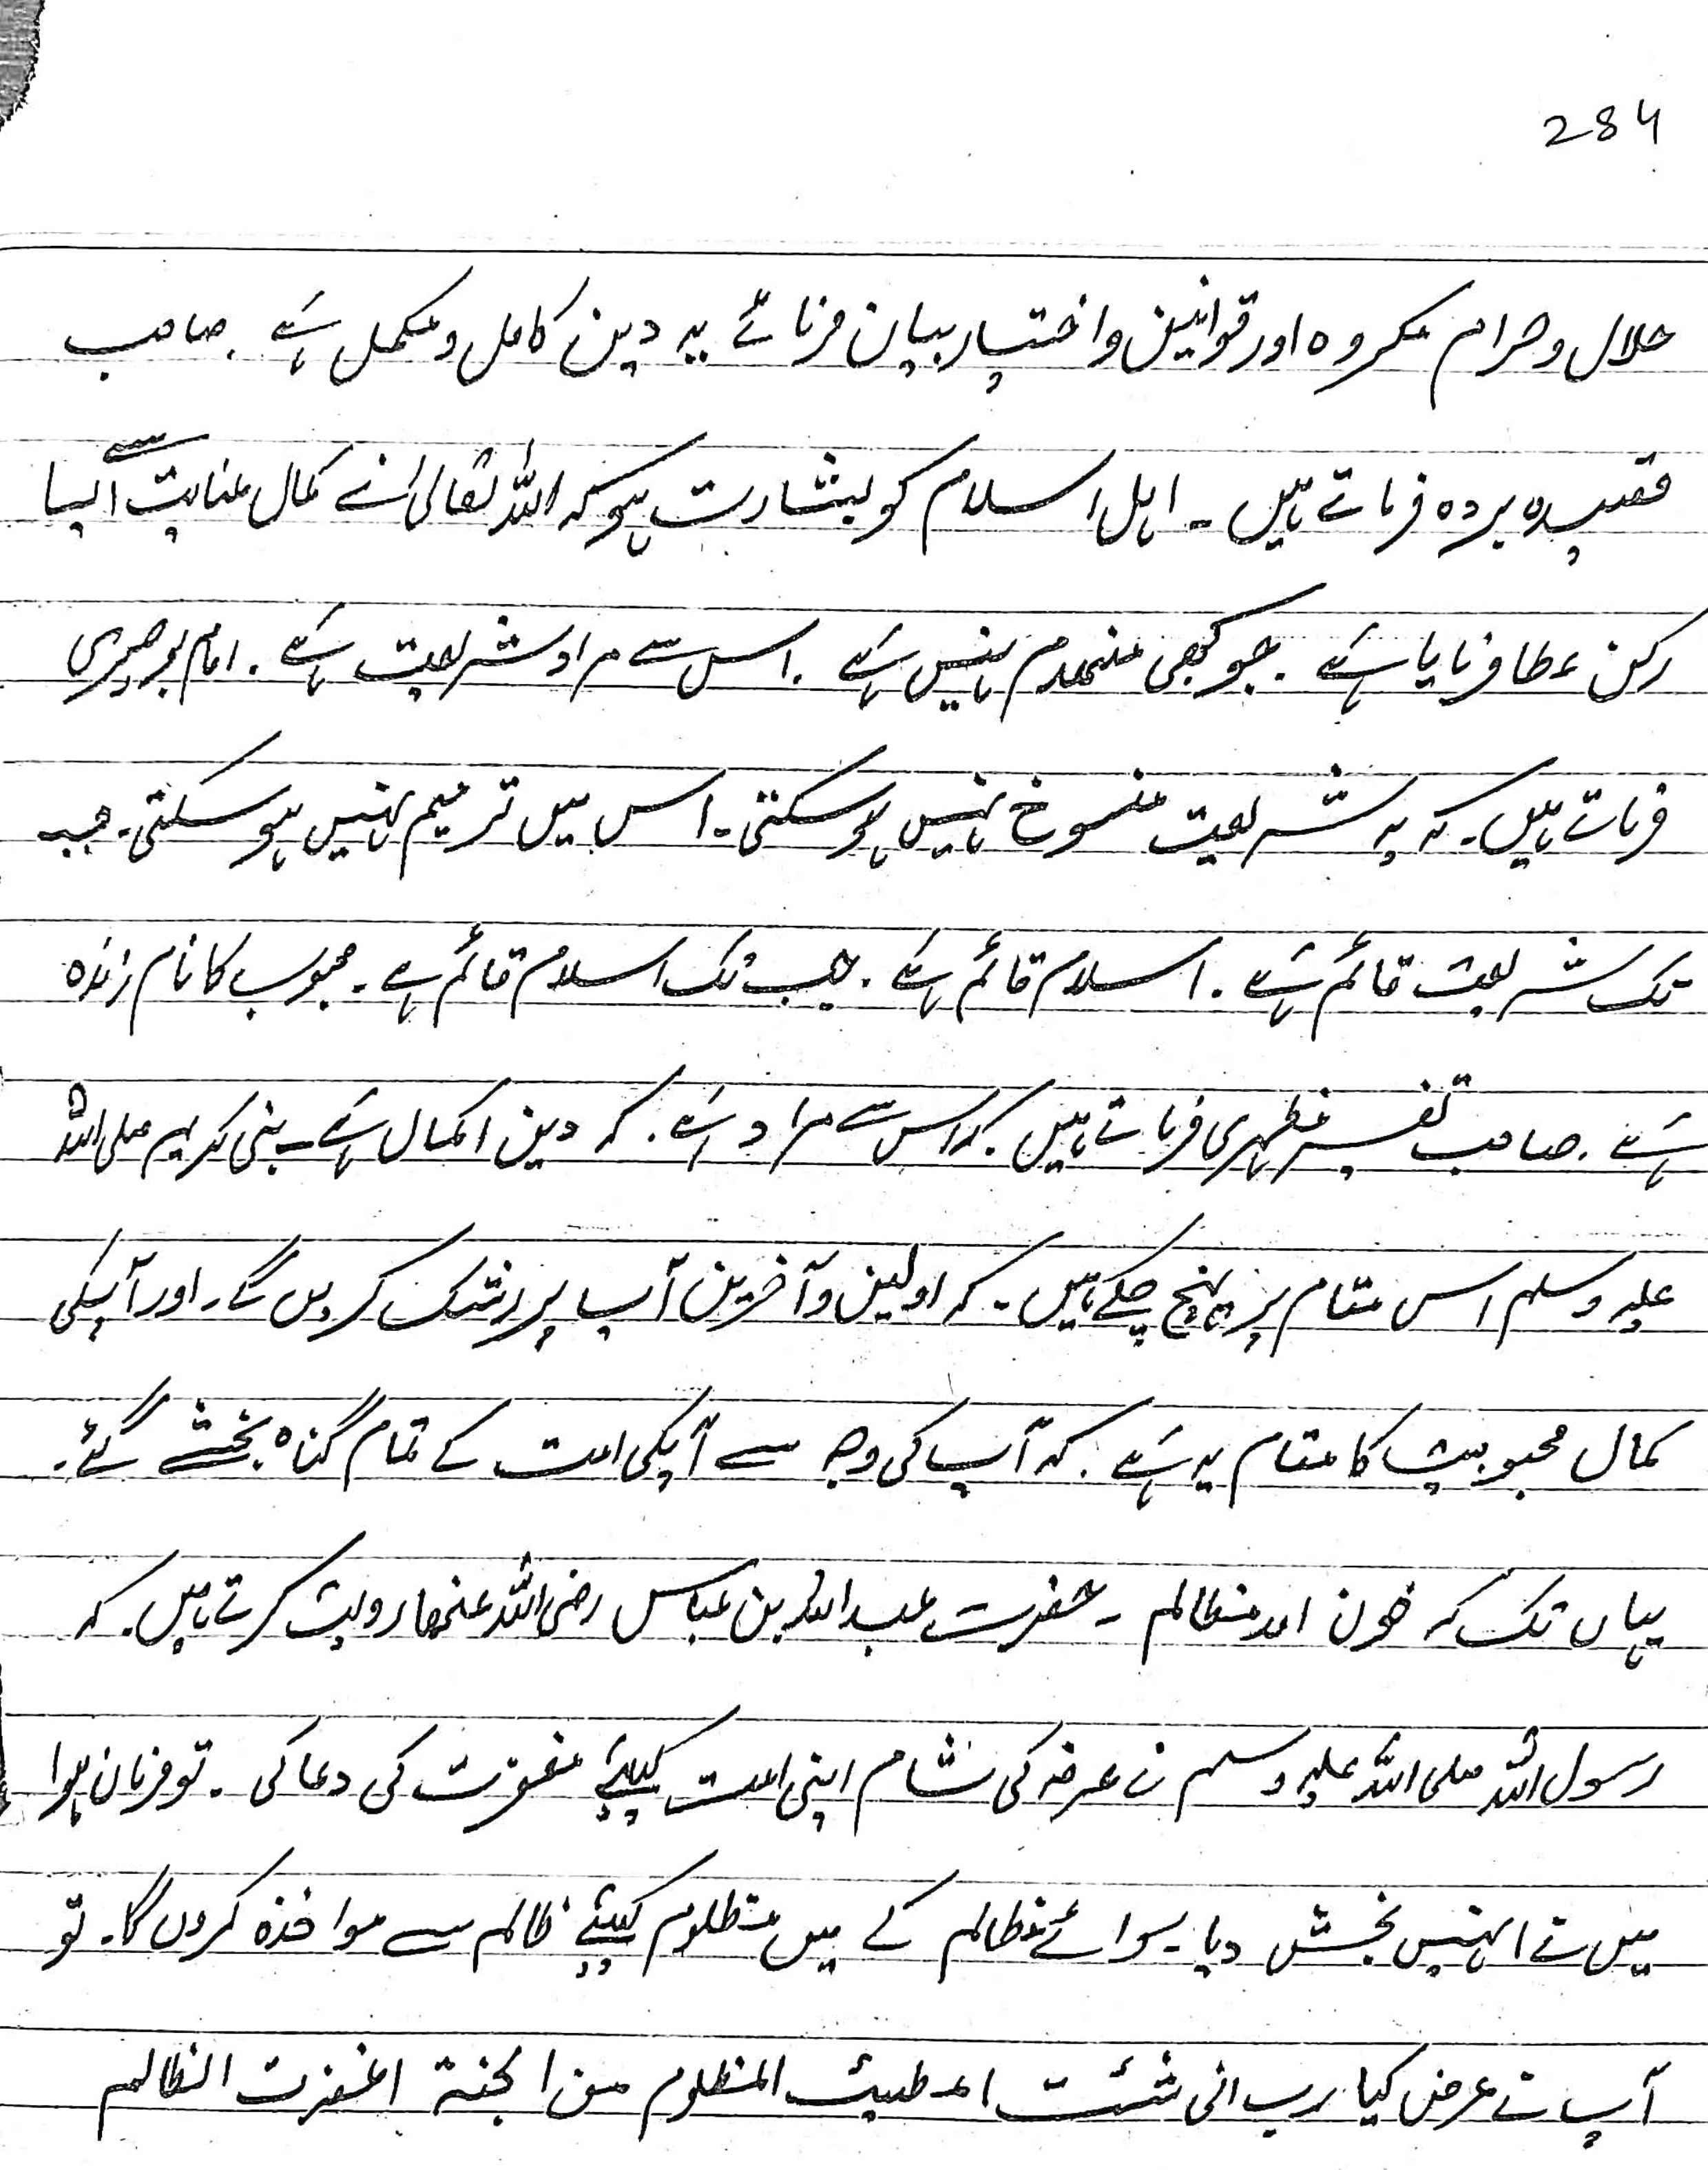 284
حلال و حرام مکروہ اور قوانین و اختیار بیان فرمائے یہ دین کامل و مکمل ہے ۔ صاحب
قصیدہ بردہ فرماتے ہیں ۔ اہل اسلام کو بشارت ہو کہ اللہ تعالیٰ نے کمال عنایت سے ایسا
رکن عطا فرمایا ہے ۔ جو کبھی منہدم نہیں ہے ۔ اس سے مراد شریعت ہے ۔ امام بوصیری
فرماتے ہیں ۔ کہ یہ شریعت منسوخ نہیں ہو سکتی ۔ اس میں ترمیم نہیں ہو سکتی ۔ جب
تک شریعت قائم ہے ۔ اسلام قائم ہے ۔ جب تک اسلام قائم ہے ۔ محبوب کا نام زندہ
ہے ۔ صاحب تفسیر مظہری فرماتے ہیں ۔ کہ اس سے مراد ہے ۔ کہ دین اکمال ہے ۔ نبی کریم صلی اللہ
علیہ وسلم اس مقام پر پہنچ چکے ہیں ۔ کہ اولین و آخرین آپ پر رشک کریں گے ۔ اور آپکی
کمال محبوبیت کا مقام یہ ہے ۔ کہ آپ کی وجہ سے آپکی امت کے تمام گناہ بخشے گئے ۔
یہاں تک کہ خون اور مظالم ۔ حضرت عبداللہ بن عباس رضی اللہ عنھما روایت کرتے ہیں ۔ کہ
رسول اللہ صلی اللہ علیہ وسلم نے عرفہ کی شام اپنی امت کیلئے مغفرت کی دعا کی ۔ تو فرمان ہوا
میں نے انہیں بخش دیا ۔ سوائے مظالم کے میں مظلوم کیلئے ظالم سے مواخذہ کروں گا ۔ تو
آپ نے عرض کیا رب انی شئت المظلوم من الجنۃ اغفرت الظالم